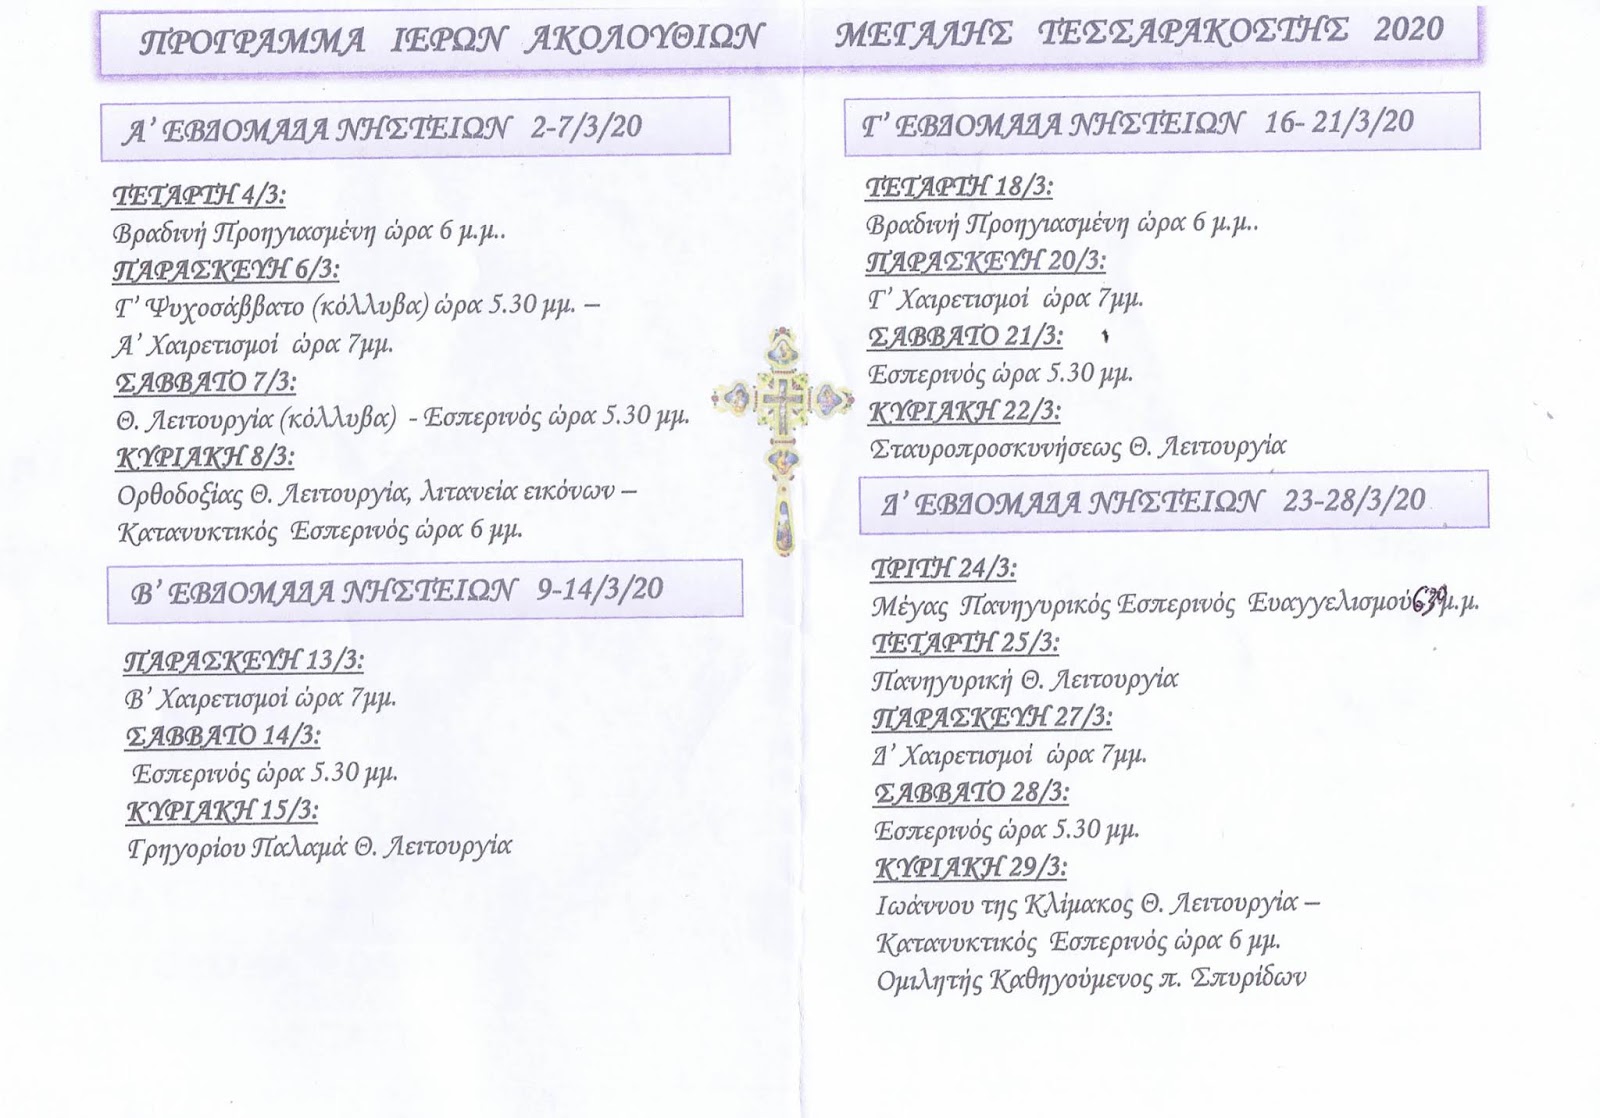 ΠΡΟΓΡΑΜΜΑ ΙΕΡΩΝ ΑΚΟΛΟΥΘΙΩΝ ΜΕΓΑΛΗΣ ΤΕΣΣΑΡΑΚΟΣΤΗΣ 2020
Α' ΕΒΔΟΜΑΔΑ ΝΗΣΤΕΙΩΝ 2-7/3/20
ΤΕΤΑΡΤΗ 4/3:
Βραδινή Προηγιασμένη ώρα 6 μ.μ..
ΠΑΡΑΣΚΕΥΗ 6/3:
Γ' Ψυχοσάββατο (κόλλυβα) ώρα 5.30 μμ. –
Α' Χαιρετισμοί ώρα 7μμ.
ΣΑΒΒΑΤΟ 7/3:
Θ. Λειτουργία (κόλλυβα) - Εσπερινός ώρα 5.30 μμ.
ΚΥΡΙΑΚΗ 8/3:
Ορθοδοξίας Θ. Λειτουργία, λιτανεία εικόνων –
Κατανυκτικός Εσπερινός ώρα 6 μμ.
Β' ΕΒΔΟΜΑΔΑ ΝΗΣΤΕΙΩΝ 9-14/3/20
ΠΑΡΑΣΚΕΥΗ 13/3:
Β' Χαιρετισμοί ώρα 7μμ.
ΣΑΒΒΑΤΟ 14/3:
Εσπερινός ώρα 5.30 μμ.
ΚΥΡΙΑΚΗ 15/3:
Γρηγορίου Παλαμά Θ. Λειτουργία
Γ' ΕΒΔΟΜΑΔΑ ΝΗΣΤΕΙΩΝ 16- 21/3/20
ΤΕΤΑΡΤΗ 18/3:
Βραδινή Προηγιασμένη ώρα 6 μ.μ..
ΠΑΡΑΣΚΕΥΗ 20/3:
Γ' Χαιρετισμοί ώρα 7μμ.
ΣΑΒΒΑΤΟ 21/3:
Εσπερινός ώρα 5.30 μμ.
ΚΥΡΙΑΚΗ 22/3:
Σταυροπροσκυνήσεως Θ. Λειτουργία
Δ' ΕΒΔΟΜΑΔΑ ΝΗΣΤΕΙΩΝ 23-28/3/20
ΤΡΙΤΗ 24/3:
Μέγας Πανηγυρικός Εσπερινός Ευαγγελισμού μ.μ.
ΤΕΤΑΡΤΗ 25/3:
Πανηγυρική Θ. Λειτουργία
ΠΑΡΑΣΚΕΥΗ 27/3:
Δ' Χαιρετισμοί ώρα 7μμ.
ΣΑΒΒΑΤΟ 28/3:
Εσπερινός ώρα 5.30 μμ.
ΚΥΡΙΑΚΗ 29/3:
Ιωάννου της Κλίμακος Θ. Λειτουργία –
Κατανυκτικός Εσπερινός ώρα 6 μμ.
Ομιλητής Καθηγούμενος π. Σπυρίδων